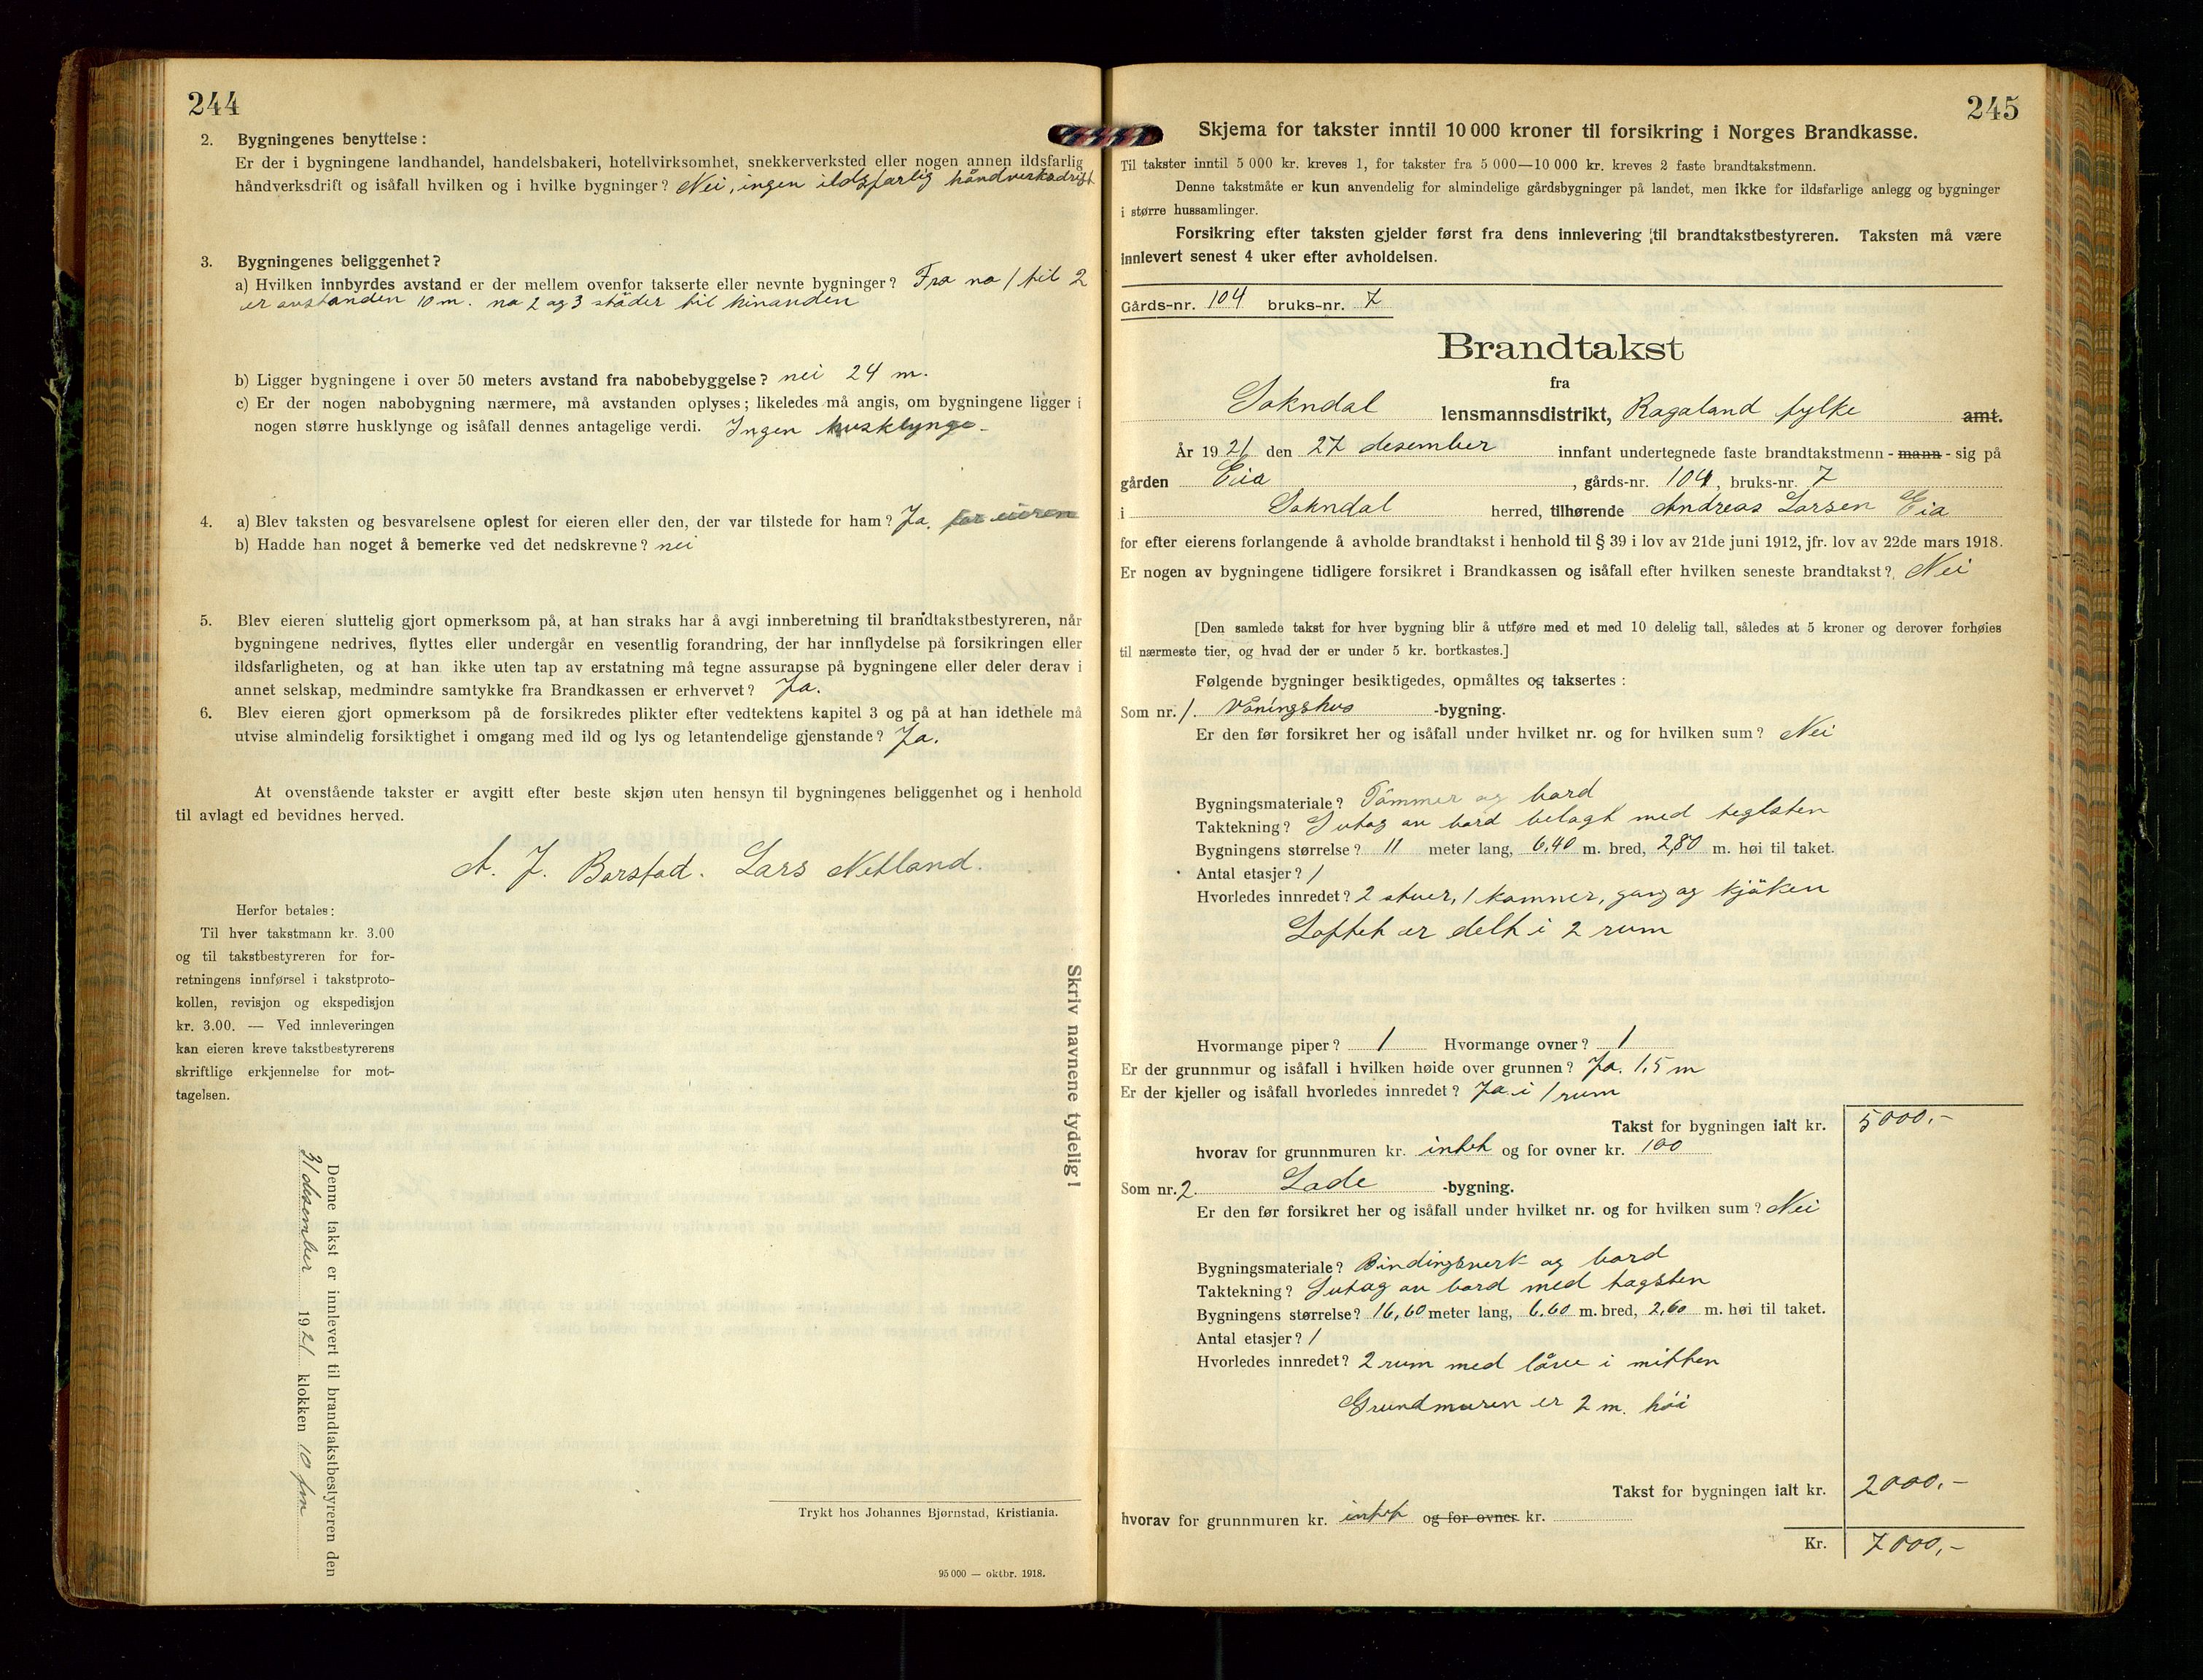 244
2. Bygningenes benyttelse:
Er der i bygningene landhandel, handelsbakeri, hotellvirksomhet, snekkerverksted eller nogen annen ildsfarlig
håndverksdrift og isåfall hvilken og i hvilke bygninger? Nei, ingen ildsfarlig håndverksdrift
3. Bygningenes beliggenhet?
a) Hvilken innbyrdes avstand er der mellem ovenfor takserte eller nevnte bygninger? Fra no 1 til 2
er avstanden 10 m. no 2 og 3 stöder til hinanden
b) Ligger bygningene i over 50 meters avstand fra nabobebyggelse? nei 24 m.
c) Er der nogen nabobygning nærmere, må avstanden oplyses; likeledes må angis, om bygningene ligger i
nogen større husklynge og isåfall dennes antagelige verdi. Ingen husklynge.
4. a) Blev taksten og besvarelsene oplest for eieren eller den, der var tilstede for ham? Ja. for eieren
b) Hadde han noget å bemerke ved det nedskrevne? nei
5. Blev eieren sluttelig gjort opmerksom på, at han straks har å avgi innberetning til brandtakstbestyreren, når
bygningene nedrives, flyttes eller undergår en vesentlig forandring, der har innflydelse på forsikringen eller
ildsfarligheten, og at han ikke uten tap av erstatning må tegne assuranse på bygningene eller deler derav i
annet selskap, medmindre samtykke fra Brandkassen er erhvervet? Ja.
6. Blev eieren gjort opmerksom på de forsikredes plikter efter vedtektens kapitel 3 og på at han idethele må
utvise almindelig forsiktighet i omgang med ild og lys og letantendelige gjenstande? Ja.
At ovenstående takster er avgitt efter beste skjøn uten hensyn til bygningenes beliggenhet og i henhold
til avlagt ed bevidnes herved.
A. J. Barstad. Lars Netland.
Herfor betales:
Til hver takstmann kr. 3.00
og til takstbestyreren for for-
retningens innførsel i takstproto-
kollen, revisjon og ekspedisjon
kr. 3.00. — Ved innleveringen
kan eieren kreve takstbestyrerens
skriftlige erkjennelse for mot-
tagelsen.
Denne takst er innlevert til brandtakstbestyreren den
31 desember 1921 klokken 10 fm
Skriv navnene tydelig!
Trykt hos Johannes Bjørnstad, Kristiania.
95 000 — oktbr. 1918.
245
Skjema for takster inntil 10 000 kroner til forsikring i Norges Brandkasse.
Til takster inntil 5 000 kr. kreves 1, for takster fra 5 000—10 000 kr. kreves 2 faste brandtakstmenn.
Denne takstmåte er kun anvendelig for almindelige gårdsbygninger på landet, men ikke for ildsfarlige anlegg og bygninger
i større hussamlinger.
Forsikring efter taksten gjelder først fra dens innlevering til brandtakstbestyreren. Taksten må være
innlevert senest 4 uker efter avholdelsen.
Gårds-nr. 104 bruks-nr. 7
Brandtakst
fra
Sokndal lensmannsdistrikt, Rogaland fylke amt.
År 1921 den 27 desember innfant undertegnede faste brandtakstmenn - mann - sig på
gården Eia, gårds-nr. 104, bruks-nr. 7
i Sokndal herred, tilhørende Andreas Larsen Eia
for efter eierens forlangende å avholde brandtakst i henhold til § 39 i lov av 21de juni 1912, jfr. lov av 22de mars 1918.
Er nogen av bygningene tidligere forsikret i Brandkassen og isåfall efter hvilken seneste brandtakst? Nei
[Den samlede takst for hver bygning blir å utføre med et med 10 delelig tall, således at 5 kroner og derover forhøies
til nærmeste tier, og hvad der er under 5 kr. bortkastes.]
Følgende bygninger besiktigedes, opmåltes og taksertes:
Som nr. 1. Våningshus -bygning.
Er den før forsikret her og isåfall under hvilket nr. og for hvilken sum? Nei
Bygningsmateriale? Tömmer og bord
Taktekning? Sutag av bord belagt med teglsten
Bygningens størrelse? 11 meter lang, 6,40 m. bred, 2,80 m. høi til taket.
Antal etasjer? 1
Hvorledes innredet? 2 stuer, 1 kammer, gang og kjöken
Loftet er delt i 2 rum
Hvormange piper? 1 Hvormange ovner? 1
Er der grunnmur og isåfall i hvilken høide over grunnen? Ja. 1,5 m
Er der kjeller og isåfall hvorledes innredet? Ja. i 1 rum
Takst for bygningen ialt kr. 5000,-
hvorav for grunnmuren kr. intet og for ovner kr. 100
Som nr. 2. Lade -bygning.
Er den før forsikret her og isåfall under hvilket nr. og for hvilken sum? Nei
Bygningsmateriale? Bindingsverk og bord
Taktekning? Sutag av bord med tagsten
Bygningens størrelse? 16,60 meter lang, 6,60 m. bred, 2,60 m. høi til taket.
Antal etasjer? 1
Hvorledes innredet? 2 rum med låve i mitten
Grundmuren er 2 m. höi
Takst for bygningen ialt kr. 2000,-
hvorav for grunnmuren kr. intet og for ovner kr.
Kr. 7000,-